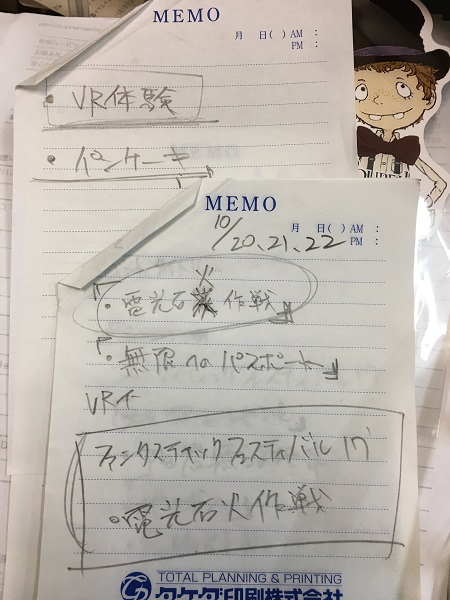 MEMO
月 日( ) AM :
PM :
・VR体験
・パンケーキ
MEMO
月 日( ) AM :
PM :
10/20、21、22
「・電光石火作戦」
「・無限へのパスポート」
VR个
ファンタスティックフェスティバル17'
・電光石火作戦
TOTAL PLANNING & PRINTING
タケダ印刷株式会社